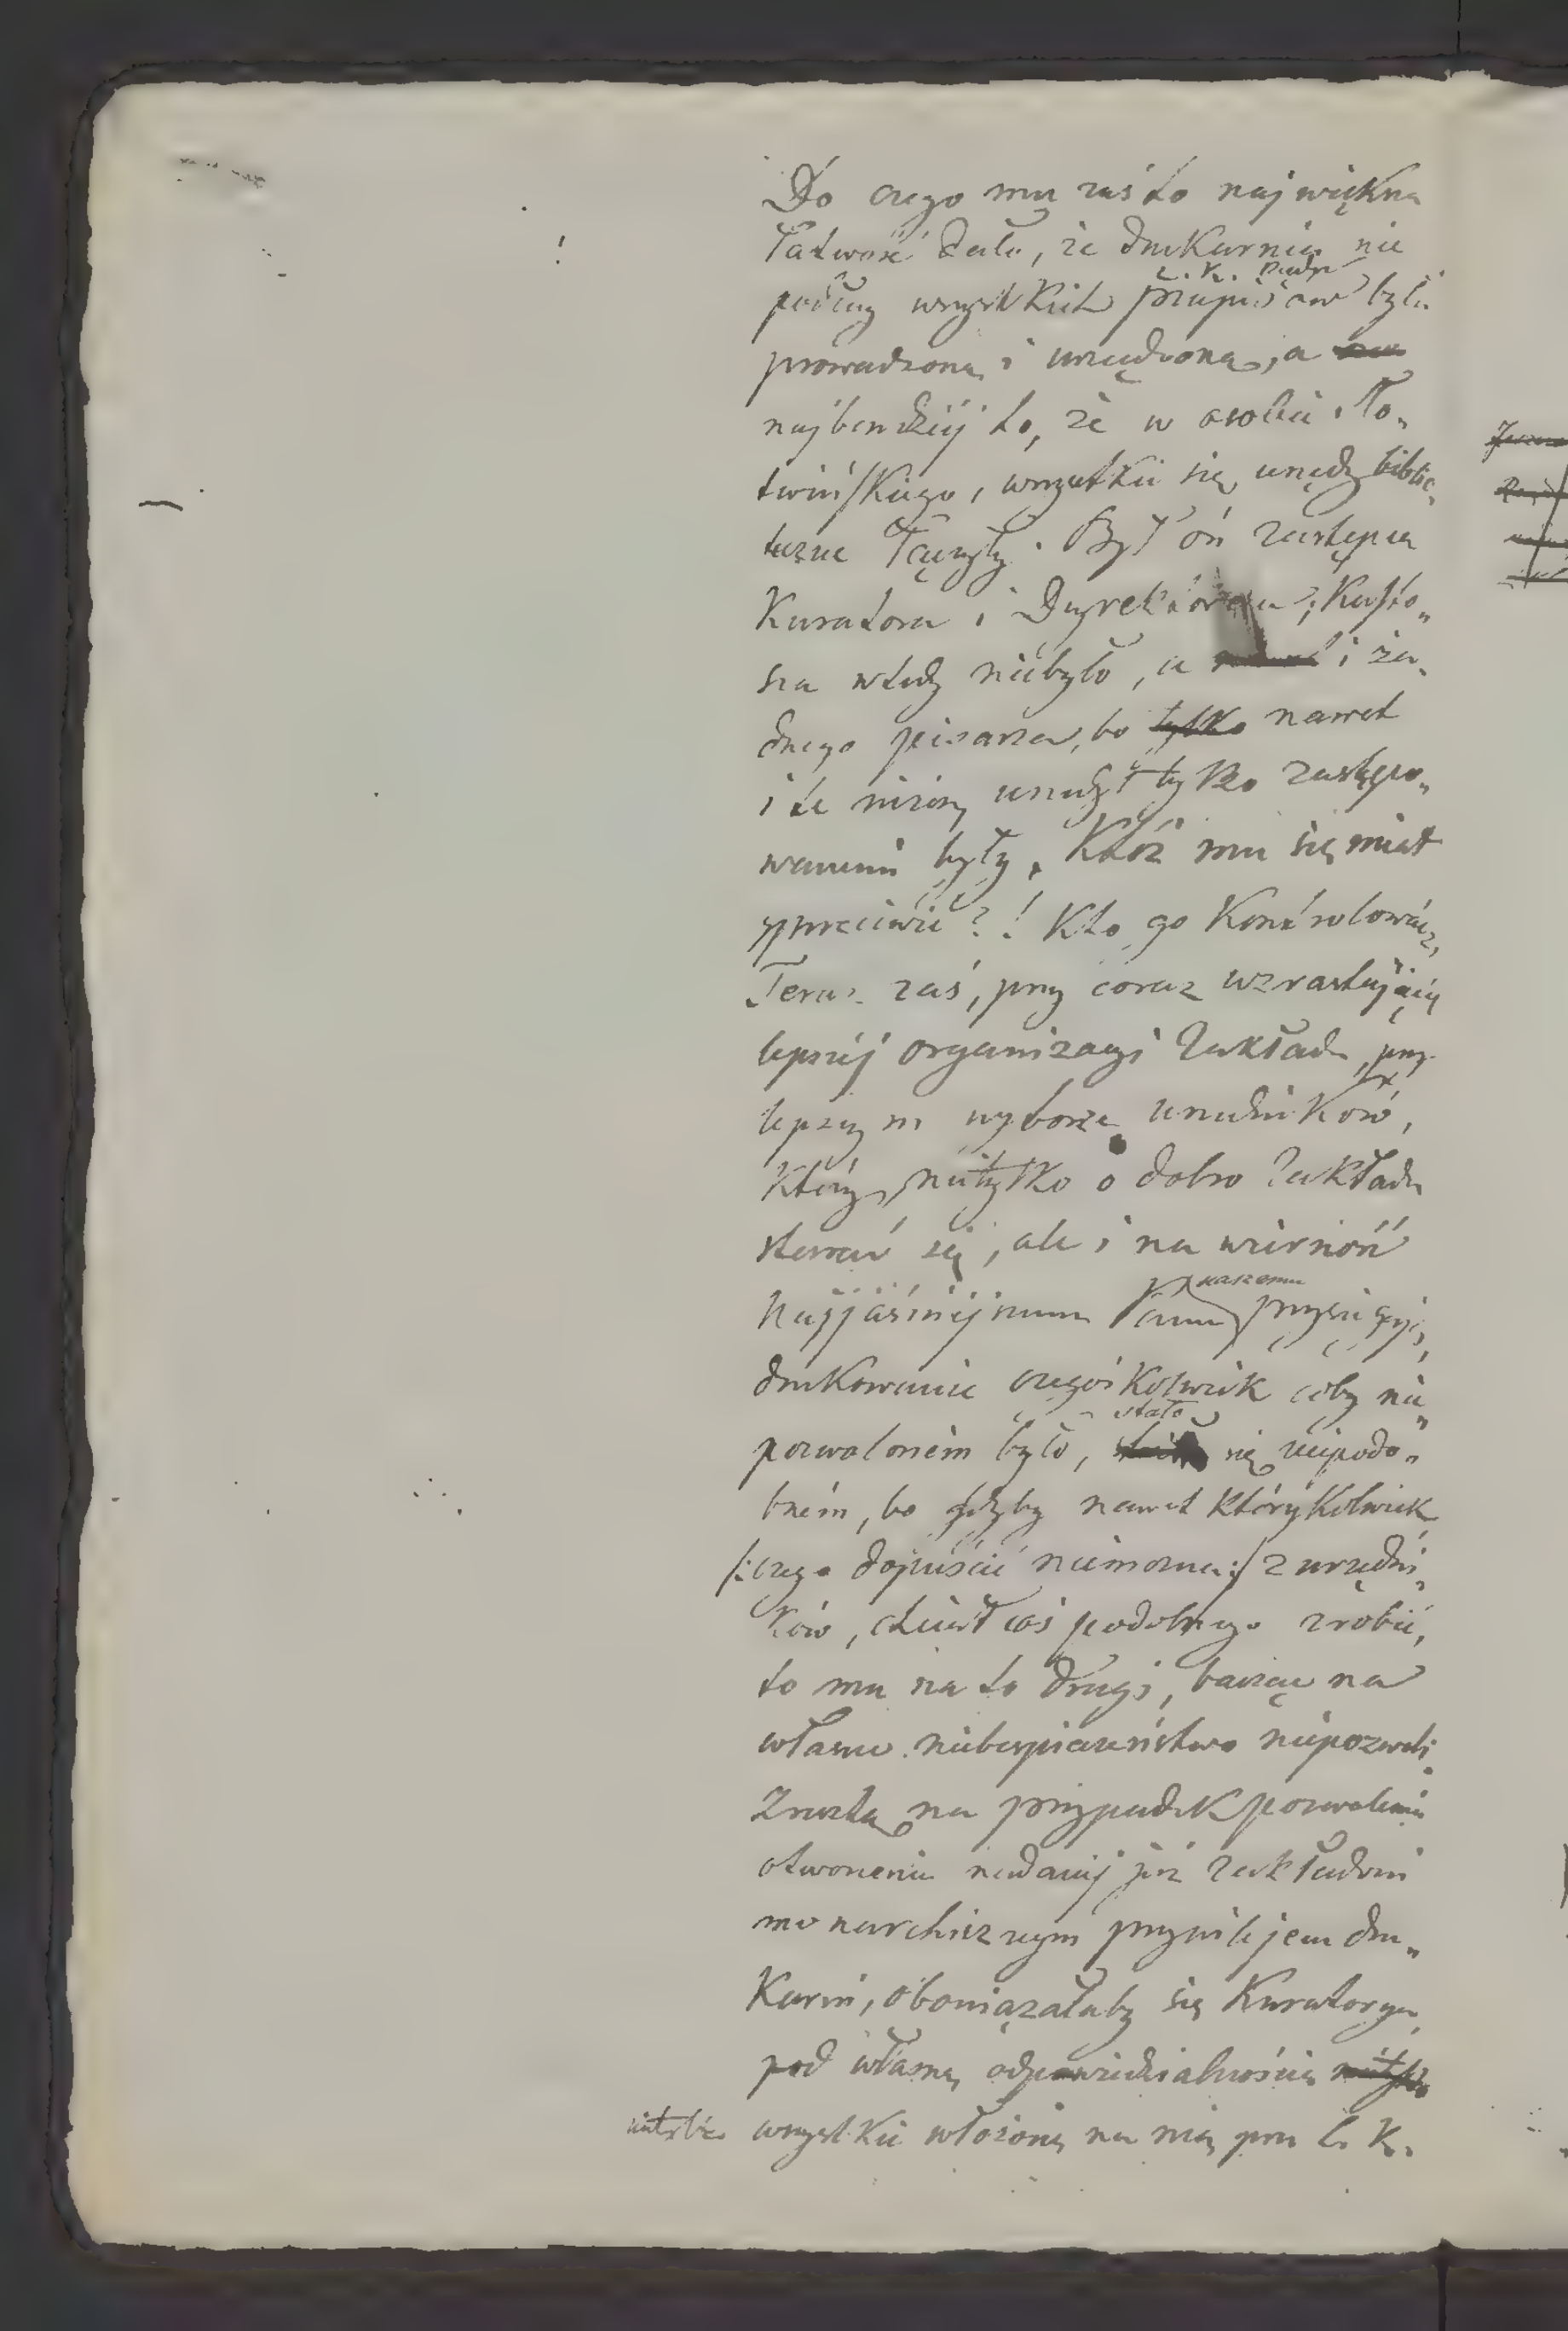 Do czego mu zaś to największa
łatwość dało, że drukarnia nie
c. k. rządu
podług wszystkich przepisów była
prowadzoną i urządzoną, a
najbardziéj to, że w osobie Sło„
twińskiego, wszystkie się urzędy biblio„
teczne łączyły. Był on zastępcą
Kuratora i Dyrektorem; Kusto„
sza wtedy niebyło, a i ża„
dnego pisarza, bo tylko nawet
i te niższe urzędy tylko zastępo„
wanemi były. Któż mu się miał
sprzeciwić?! Kto go kontrolować,
Teraz zaś, przy coraz wzrastającéj
lepszéj organizacyi Zakładu, przy
lepszym wyborze urzędników,
którzy nietylko o dobro Zakładu
starać się, ale i na wierność
naszemu
Najjaśniejszemu Panu przysięgają,
drukowanie czegoś kolwiek coby nie„
stało
pozwoloném było, się niepodo„
bném, bo gdyby nawet którykolwiek
/:czego dopuścić niemożna:/ z urzędni„
ków, chciał coś podobnego zrobić,
to mu na to drugi, bacząc na
własne niebezpieczeństwo niepozwoli.
Zresztą na przypadek pozwolenia
otworzenia nadanéj już Zakładowi
monarchicznym przywilejem dru„
karni, obowiązałaby się Kuratorya,
pod własną odpowiedzialnością nietylko
nietylko wszystkie włożone na nią przez c. k.